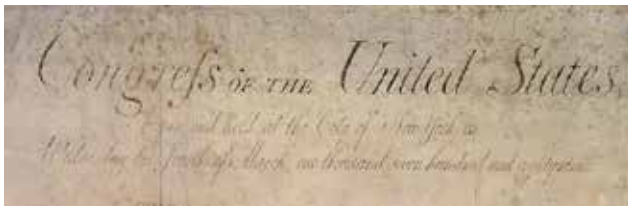 Congreſs OF THE United States,
begun and held at the City of New-York, on
Wednesday the Fourth of March, one thousand seven hundred and eighty nine